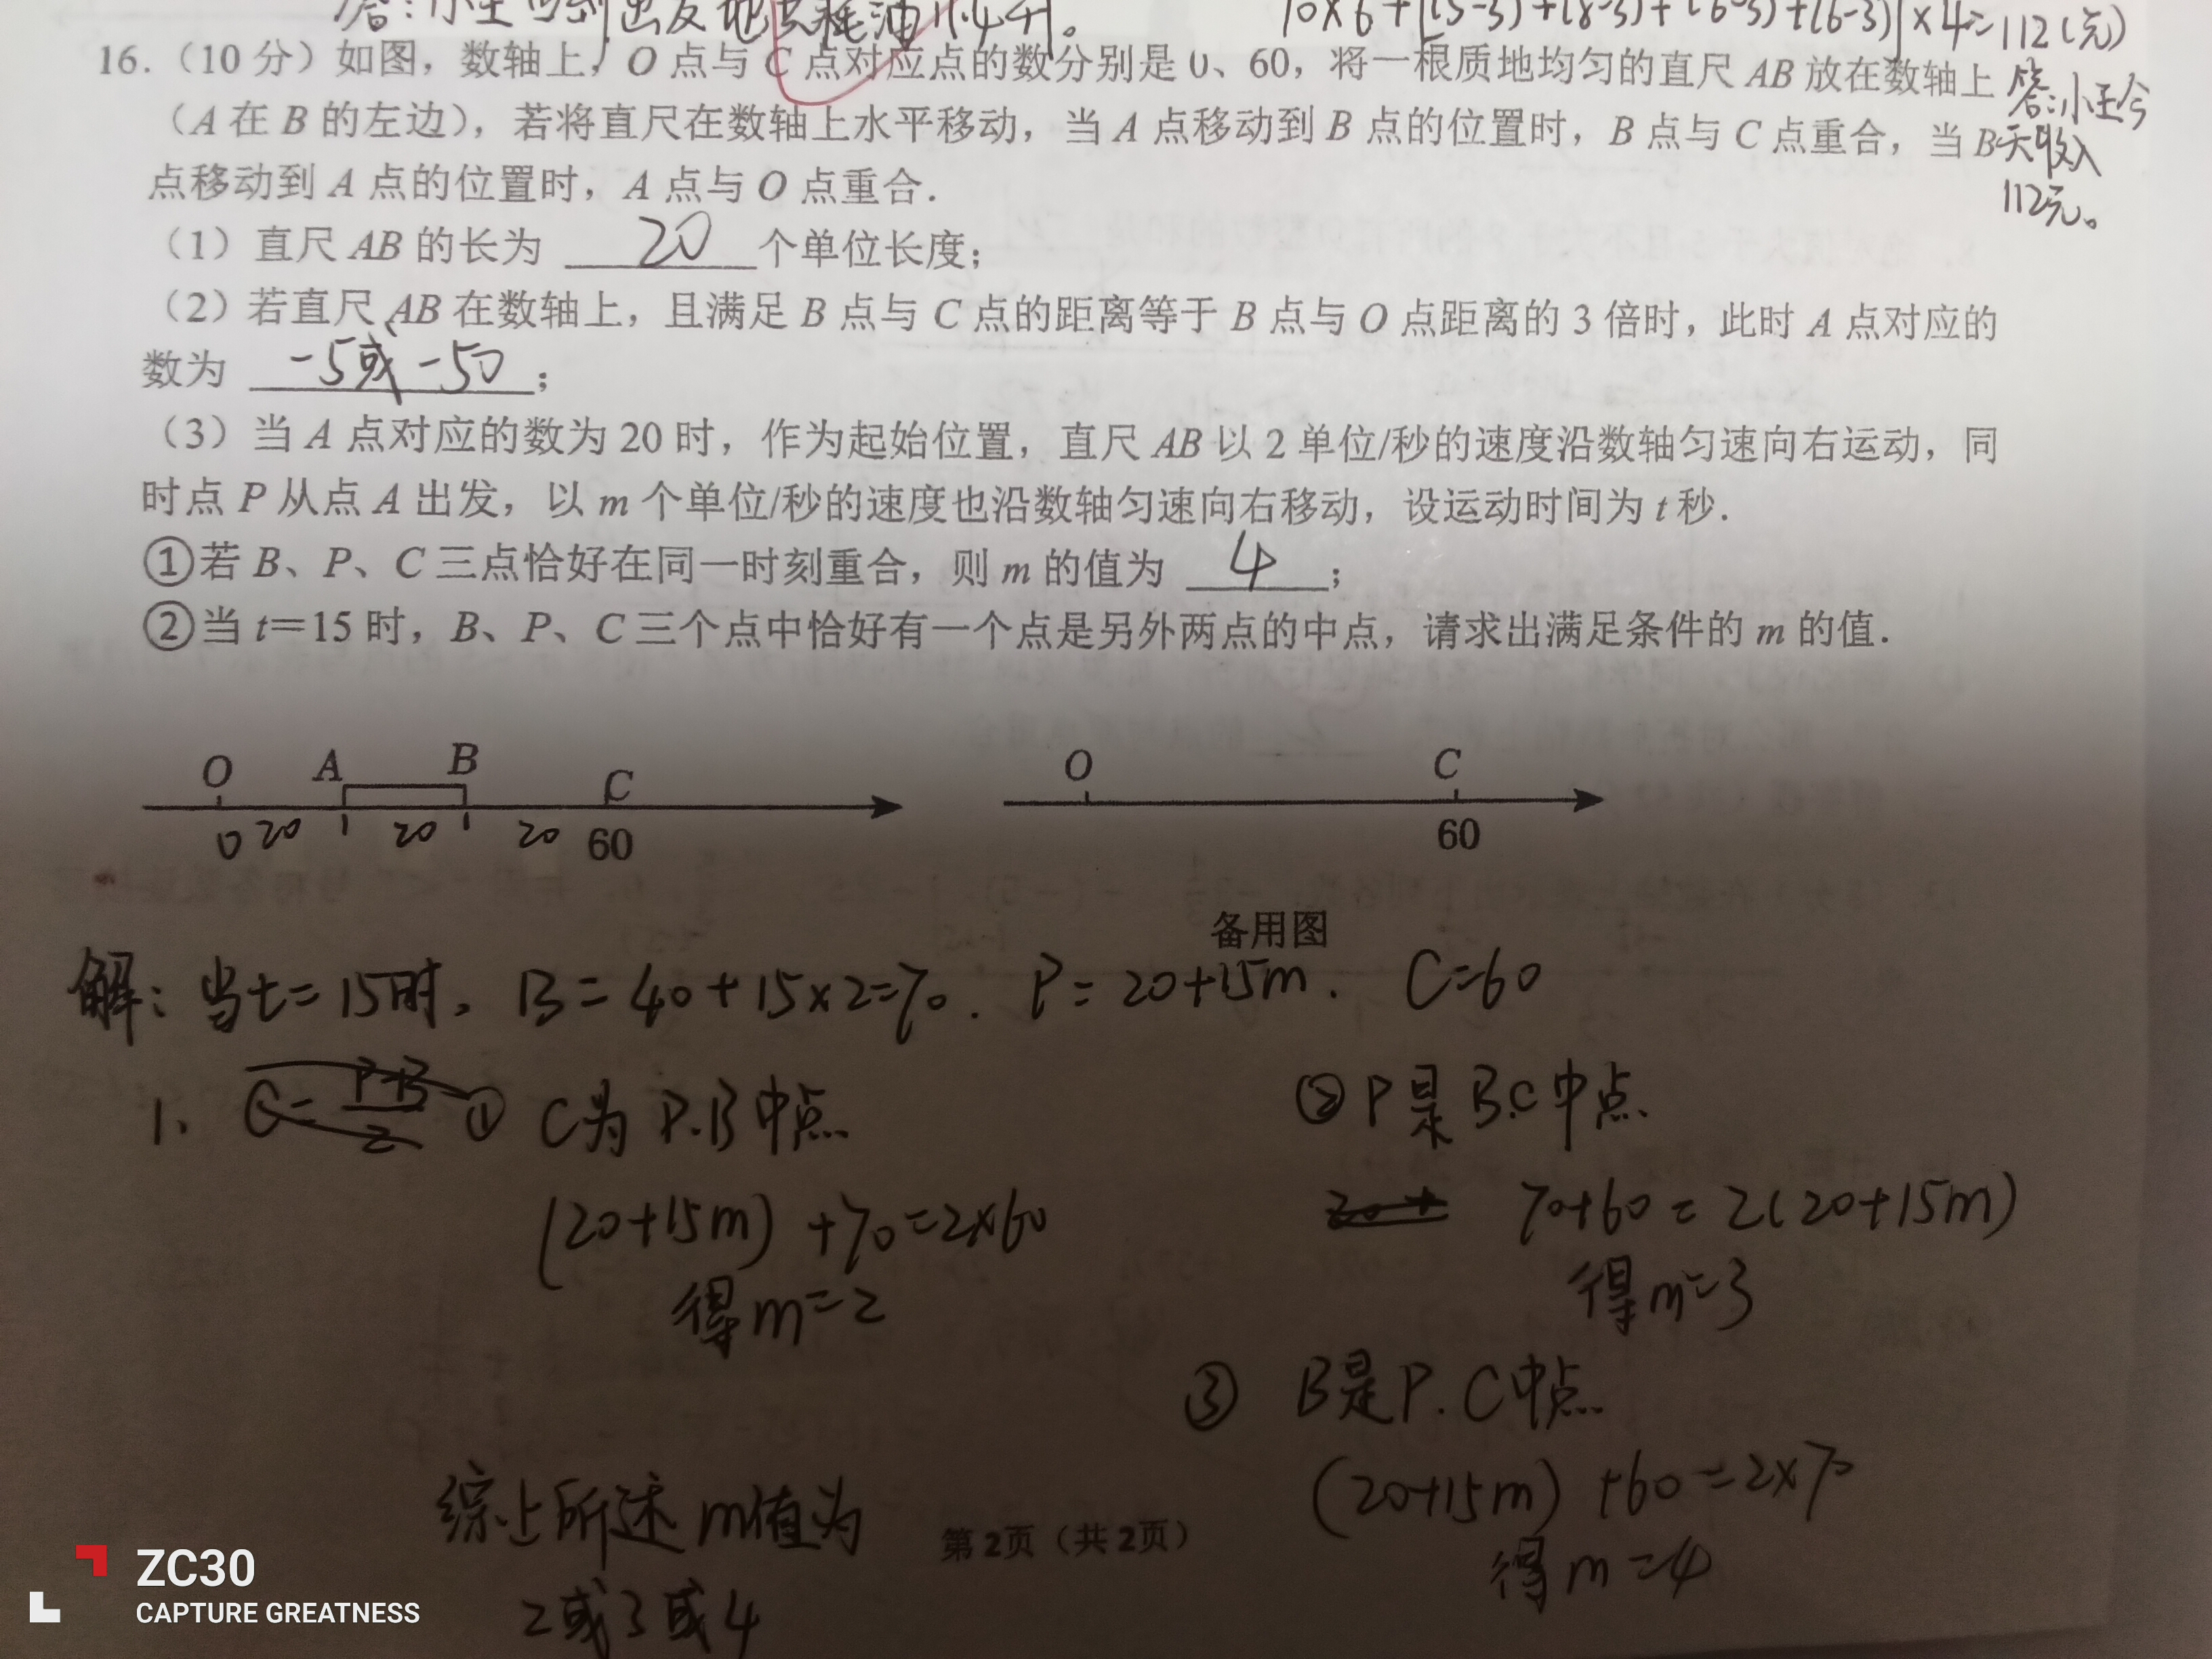 答:小王回到出发地点耗油11.4升。
10×6+[(5-3)+(8-3)+(6-3)+(6-3)]×4=112(元)
16.（10 分）如图，数轴上，O 点与 C 点对应点的数分别是 0、60，将一根质地均匀的直尺 AB 放在数轴上
答:小王今
（A 在 B 的左边），若将直尺在数轴上水平移动，当 A 点移动到 B 点的位置时，B 点与 C 点重合，当 B
天收入
点移动到 A 点的位置时，A 点与 O 点重合．
112元。
（1）直尺 AB 的长为 20 个单位长度；
（2）若直尺 AB 在数轴上，且满足 B 点与 C 点的距离等于 B 点与 O 点距离的 3 倍时，此时 A 点对应的
数为 -5或-50；
（3）当 A 点对应的数为 20 时，作为起始位置，直尺 AB 以 2 单位/秒的速度沿数轴匀速向右运动，同
时点 P 从点 A 出发，以 m 个单位/秒的速度也沿数轴匀速向右移动，设运动时间为 t 秒．
①若 B、P、C 三点恰好在同一时刻重合，则 m 的值为 4；
②当 t＝15 时，B、P、C 三个点中恰好有一个点是另外两点的中点，请求出满足条件的 m 的值．
O A B C
0 20 20 20 60
O C
60
备用图
解:当t=15时, B=40+15×2=70. P=20+15m. C=60
1、 C=P+B/2 ① C为P.B中点
②P是B.C中点
(20+15m)+70=2×60
20+ 70+60=2(20+15m)
得m=2
得m=3
③ B是P.C中点
(20+15m)+60=2×70
得m=4
综上所述m值为
2或3或4
第2页（共2页）
ZC30
CAPTURE GREATNESS